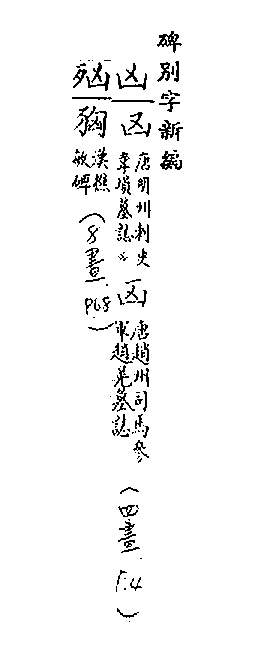 碑別字新編
凶 凶 唐明州刺史韋塤墓誌 凶 唐趙州司馬參軍趙 墓誌 (四畫 P.4)
漢樵敏碑 (8畫 P68)